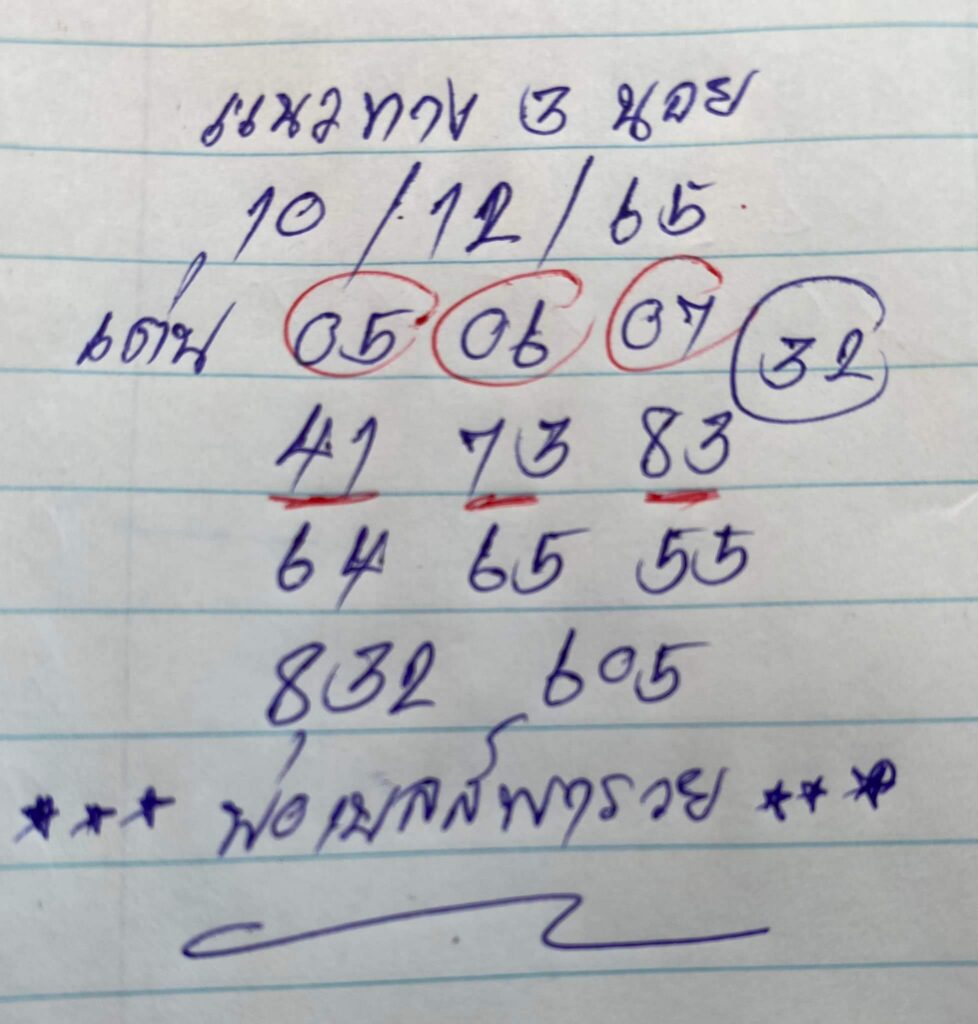 แนวทาง 3 นอย
10/12/65
เด่น 05 06 07 32
41 73 83
64 65 55
832 605
*** พ่อเบลล์พารวย ***